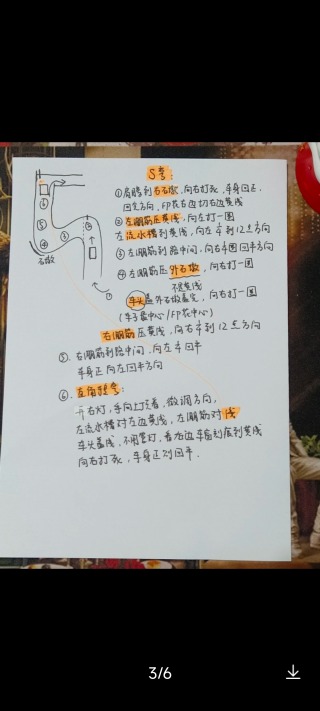 S弯:
①肩膀到右石墩,向右打死,车身回正,
回完方向,印花右边切右边黄线
②左侧筋压黄线,向左打一圈
左流水槽到黄线,向左
到12点方向
③左侧筋到路中间,向右
圈回半方向
④左侧筋压外石墩,向右打一圈
不是黄线
车头盖外石墩盖完,向右打一圈
(车子最中心/印花中心)
右侧筋压黄线,向右
到12点方向
⑤.右侧筋到路中间,向左
回半
车身正向左回半方向
⑥.直角转弯:
开右灯,手向上
看,微调方向,
左流水槽对左边黄线,左侧筋对线
车头盖线,不用管灯,看右边车窗
底到黄线
向右打死,车身正则回平.
石墩
①
②
③
④
⑤
⑥
3/6